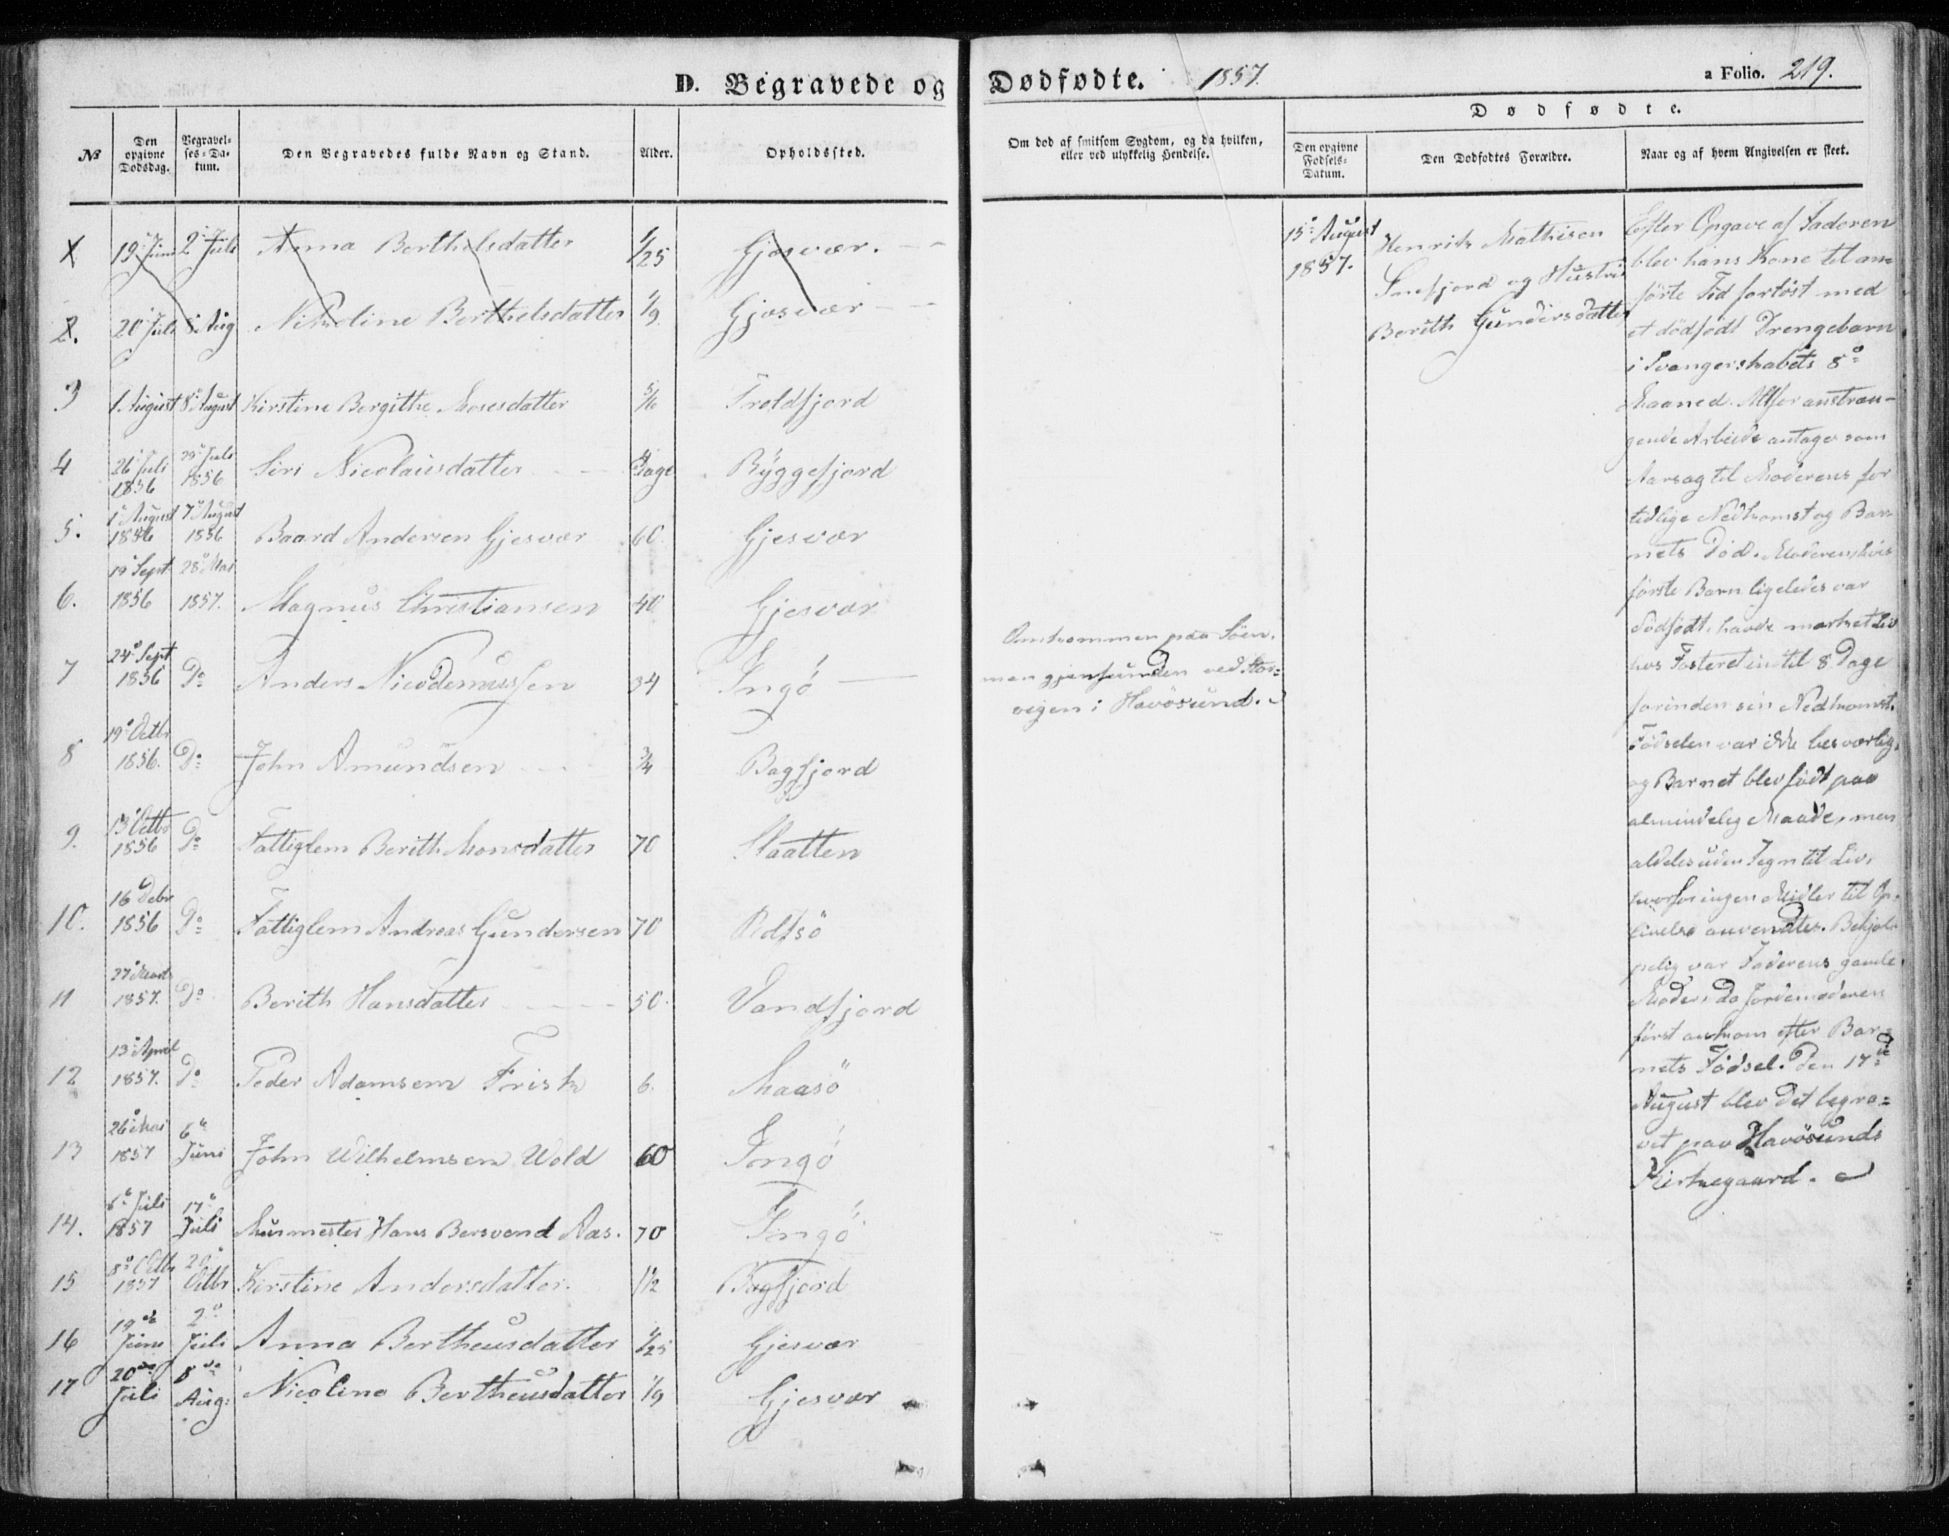 D. Begravede og Dødfødte. 1857. a Folio. 219.
Dødfødte.
No
Den opgivne Dødsdag.
Begravelses-Datum.
Den Begravedes fulde Navn og Stand.
Alder.
Opholdssted.
Om død af smitsom Sygdom, og da hvilken, eller ved ulykkelig Hendelse.
Den opgivne Fødsels-Datum.
Den Dødfødtes Forældre.
Naar og af hvem Angivelsen er skeet.
1 19 Juni 2 Juli Anna Berthelsdatter 1/25 Gjesvær.
2. 20 Juli 8 Aug Nikoline Berthelsdatter 1/9 Gjesvær
3 1 August 8 August Kirstine Bergithe Mosesdatter 5/6 Troldfjord
4 26 Juli 1856 Juli 1856 Siri Nicolaisdatter Dage Ryggefjord
5. 1 August 1856 7 August 1856 Baard Andersen Gjesvær 60 Gjesvær
6. 19 Sept. 1856 28 Mai 1857. Magnus Christiansen 40 Gjesvær
7 24 Sept 1856 Do Anders Nicodemussen 34 Ingö
Omkommen paa Söen, men gjenfunden ved Stor-
vigen i Havösund.
8 19 Octbr 1856. Do John Amundsen 3/4 Bagfjord
9. 13 Octbr 1856 Do Fattiglem Berith Monsdatter 70 Slaatten
10. 16 Debr 1856 Do Fattiglem Andreas Gundersen 70
11 27 Marts 1857. Do Berith Hansdatter 50. Vandfjord
12 13 April 1857. Do Peder Adamsen Frisk 6. Maasö
13 26 Mai 1857 6 Juni John Wilhelmsen Wold 60 Ingö
14. 6 Juli 1857 17 Juli Murmester Hans Bersvend Aas. 70 Ingö
15 8 Octbr 1857 20 Octbr Kirstine Andersdatter. 1 1/2 Bagfjord
16 19de Juni 2 Juli Anna Bertheusdatter 1/25 Gjesvær
17 20de Juli 8de Aug: Nicoline Bertheusdatter 1/9 Gjesvær
15 August
1857.
Henrik Mathisen
Snefjord og Hustru
Berith Gundersdatter
Efter Opgave af Faderen
blev hans Kone til an-
förte Tid forlöst med
et dödfödt Drengebarn
i Svangerskabets 8
Maaned. Altfor anstræn-
gende Arbeide antages som
Aarsag til Moderens for
tidlige Nedkomst og Bar-
nets Död. Moderen, hvis
förste Barn ligeledes var
dödfödt, havde mærket Liv
hos Fosteret indtil 8 Dage
forinden sin Nedkomst.
Födselen var ikke besværlig,
og Barnet blev födt paa
almindelig Maade, men
aldeles uden Tegn til Liv,
hvorfor ingen Midler til Op-
livelse anvendtes. Behjælp-
pelig var Faderens gamle
Moder, da Jordemoderen
först ankom efter Bar-
nets Födsel. Den 17de
August blev det begra-
vet paa Havösunds
Kirkegaard.